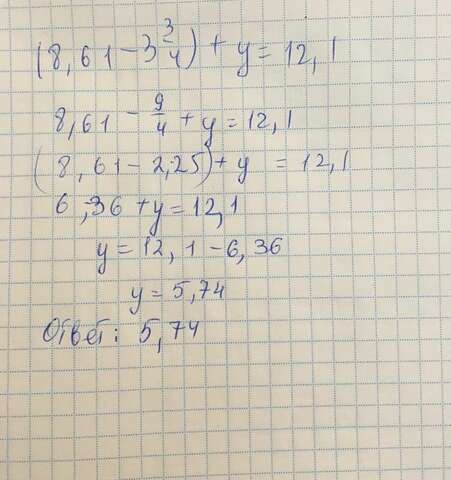 (8,61 - 3 3/4) + y = 12,1
8,61 - 9/4 + y = 12,1
(8,61 - 2,25) + y = 12,1
6,36 + y = 12,1
y = 12,1 - 6,36
y = 5,74
Ответ: 5,74